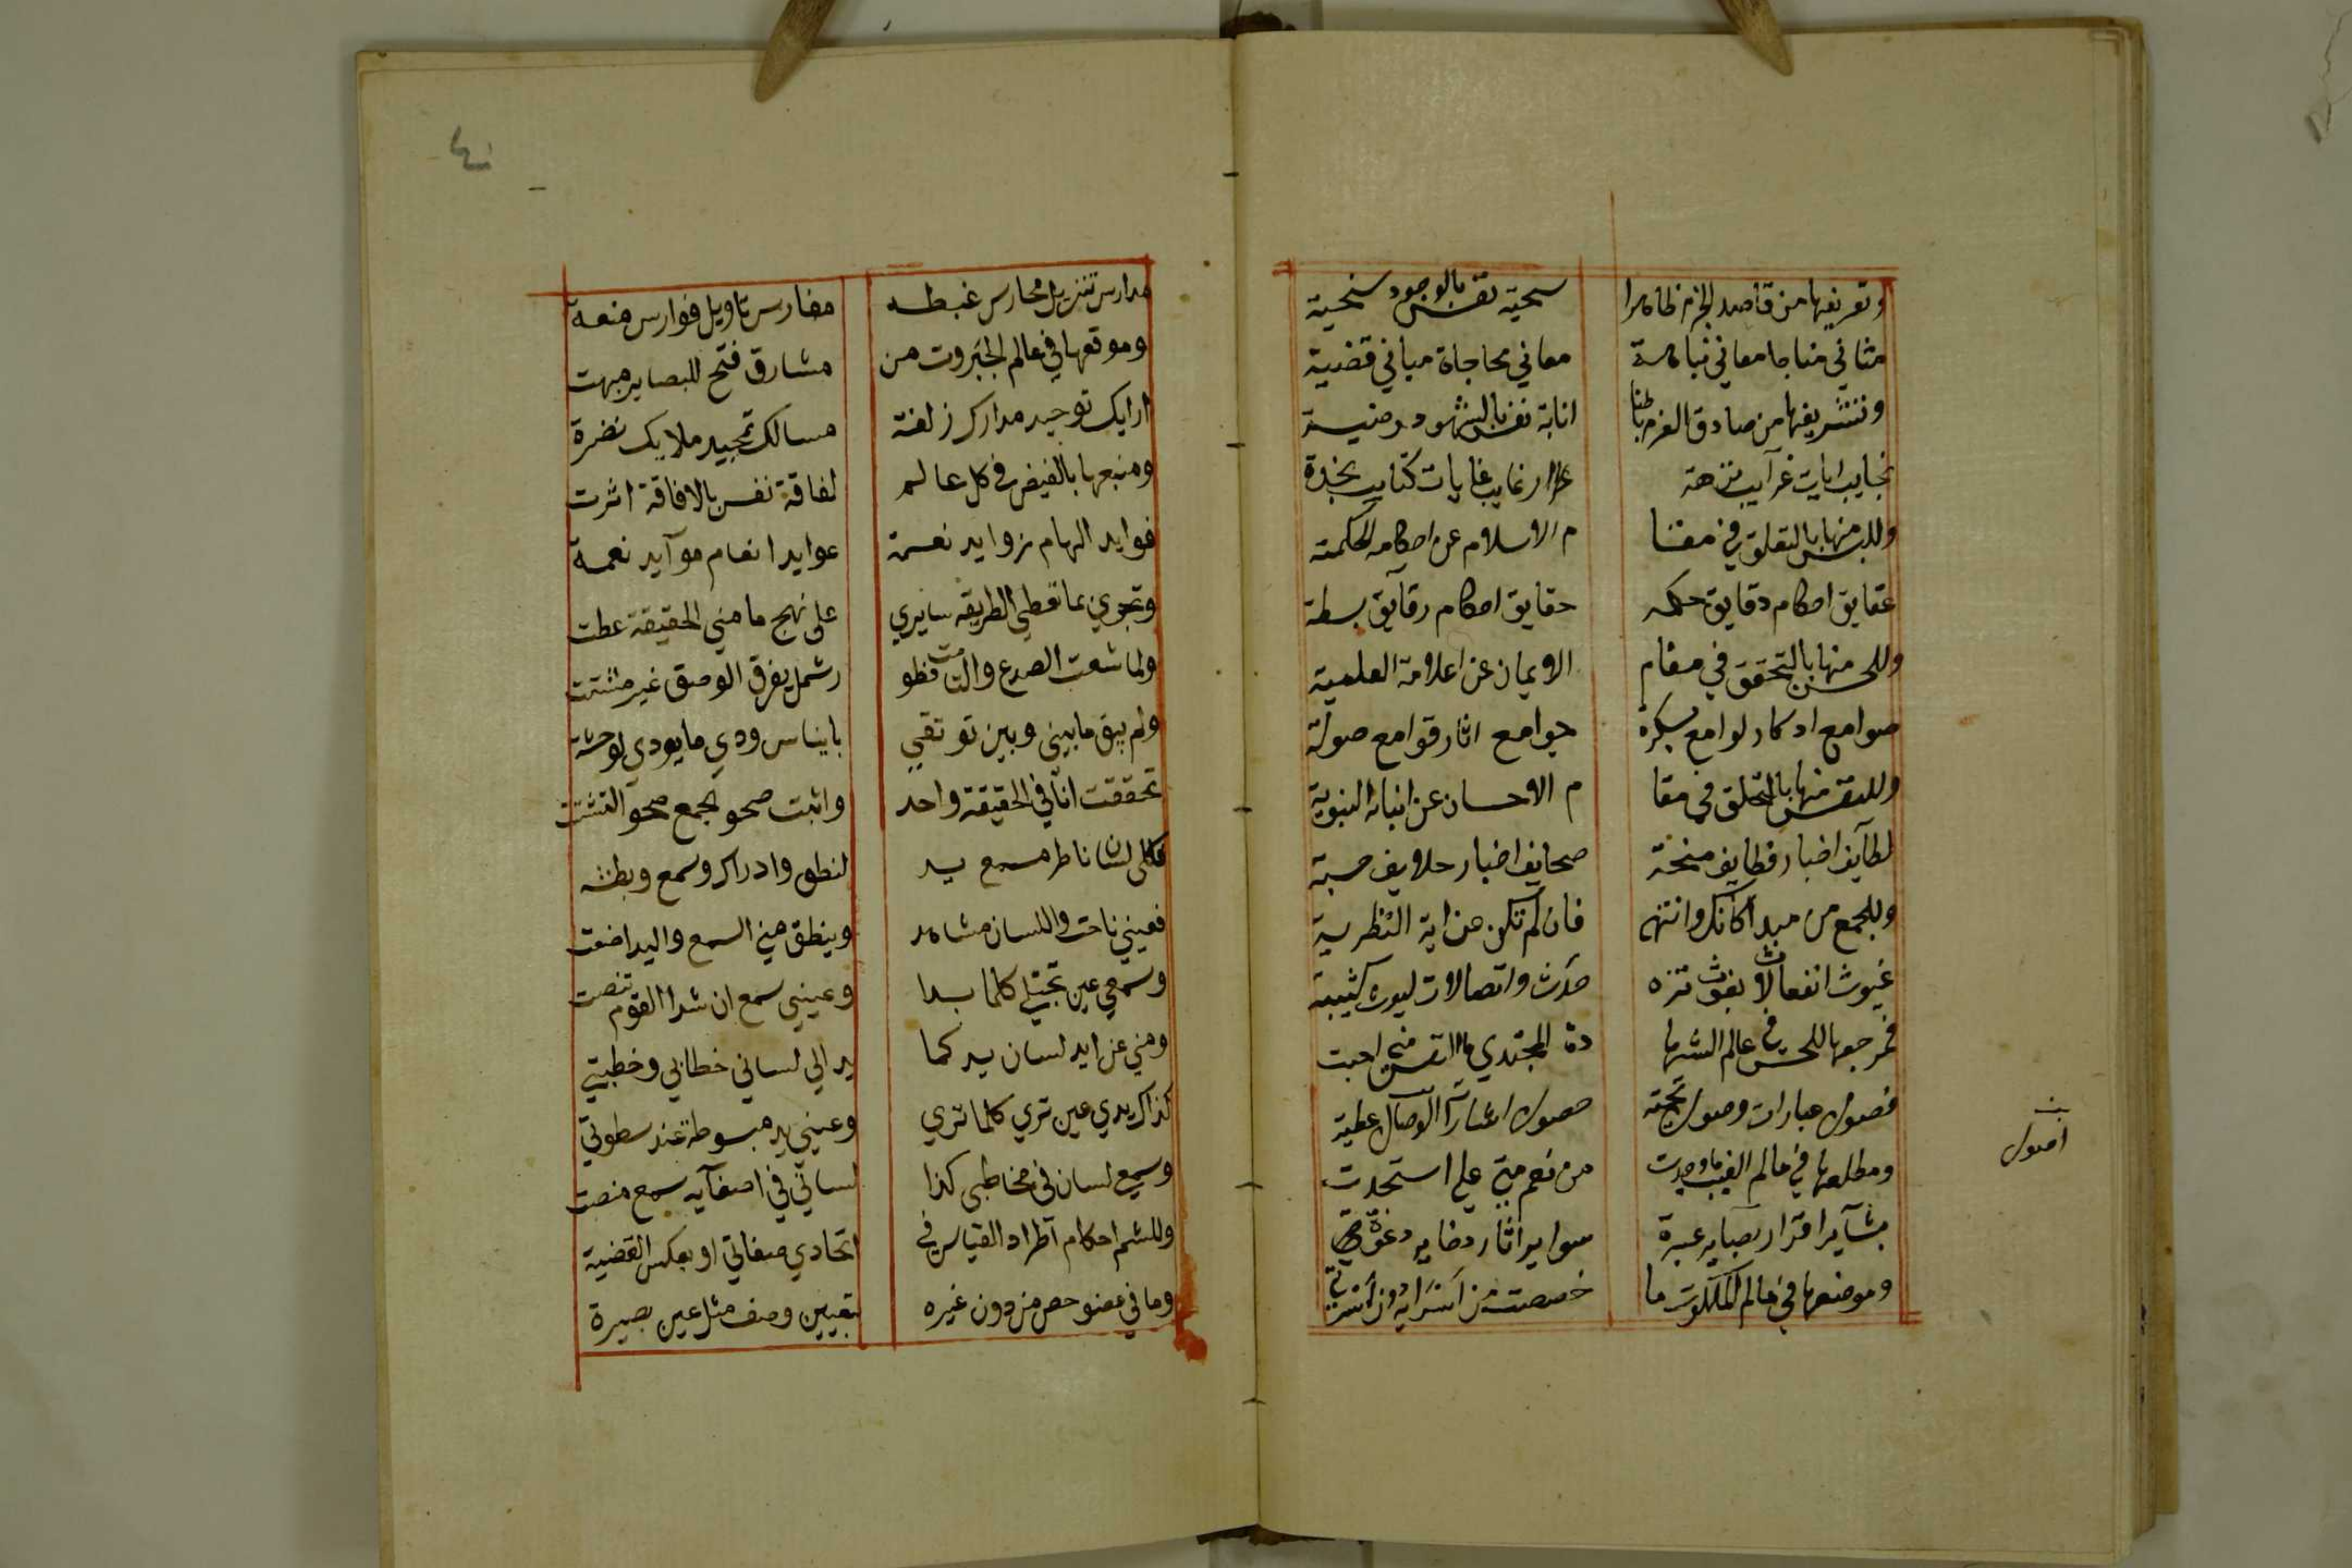 وتعريفها من قاصد الحزم ظاهرا سجية نفس بالوجود سخية
مثاني مناجاة معاني نباهة معاني محاجاة مباني قضية
وتشريفها من صادق العزم باطنا انابة نفس بالشهود رضية
نجايب ايات غرآيب نزهة رغايب غايات كتايب نجدة
وللبس منها بالتعلق في مقا م الاسلام عن احكامه الحكمية
عقايق احكام دقايق حكمه حقايق احكام رقآيق بسطة
وللحس منها بالتحقق في مقام الايمان عن اعلامه العلمية
صوامع اذكار لوامع فكرة جوامع اثار قوامع صولة
وللنفس منها بالتخلق في مقا م الاحسان عن انبائه النبوية
لطآيف اخبار وظايف منحة صحايف اخبار خلايف حسبة
وللجمع من مبدا كانك وانتهى فان لم تكن عن اية النظرية
غيوث انفعالات بعوث تنزه حدث واتصالات ليوث كتيبة
فمرجعها للحس في عالم الشها دة المجتدي ما النفس مني احبت
فصول عبارات وصول تحية حصول اشارآت الوصال عطية
ومطلعها في عالم الغيب ما وجدت من نعم مني علي استجدت
بشآير اقرار بصاير عبرة سراير اثار ذخاير دعوة
وموضعها في عالم الملكوت ما خصصت من اسرايه دون اسرتي
اصول
٤٠
مدارس تنزيل محارس غبطه مغارس تاويل فوارس منعة
وموقعها في عالم الجبروت من مشارق فتح للبصاير مبهت
ارايك توحيد مدارك زلفة مسالك تمجيد ملايك نضرة
ومنبعها بالفيض في كل عالم لفاقة نفس بالافاقة اثرت
فوايد الهام زوايد نعمة عوايد انعام موآيد نعمة
وتجري بما تعطي الطريقه سايري على نهج ما مني الحقيقة عطت
ولما شعبت الصدع والتامت فطو ر شمل بفرق الوصق غير مشتت
ولم يبق ما بيني وبين توثقي بايناس ودي ما يودي لوحشة
تحققت انا في الحقيقة واحد واثبت صحو الجمع محو التشتت
فكلي لسان ناظر مسمع يد لنطق وادراك وسمع وبطشه
فعيني ناجت واللسان مشاهد وينطق مني السمع واليد اصغت
وسمعي عين تجتلي كلما بدا وعيني سمع ان شدا القوم تنصت
ومني عن ايد لسان يد كما يد الي لساني خطابي وخطبتي
كذاك يدي عين تري كلما تري وعيني يد مبسوطة عند سطوتي
وسمع لسان في مخاطبي كذا لساني في اصغآيه سمع منصت
وللشم احكام آطراد القياس في اتحادي صفاتي او بعكس القضية
وما في عضو خص من دون غيره بتعيين وصف مثل عين بصيرة